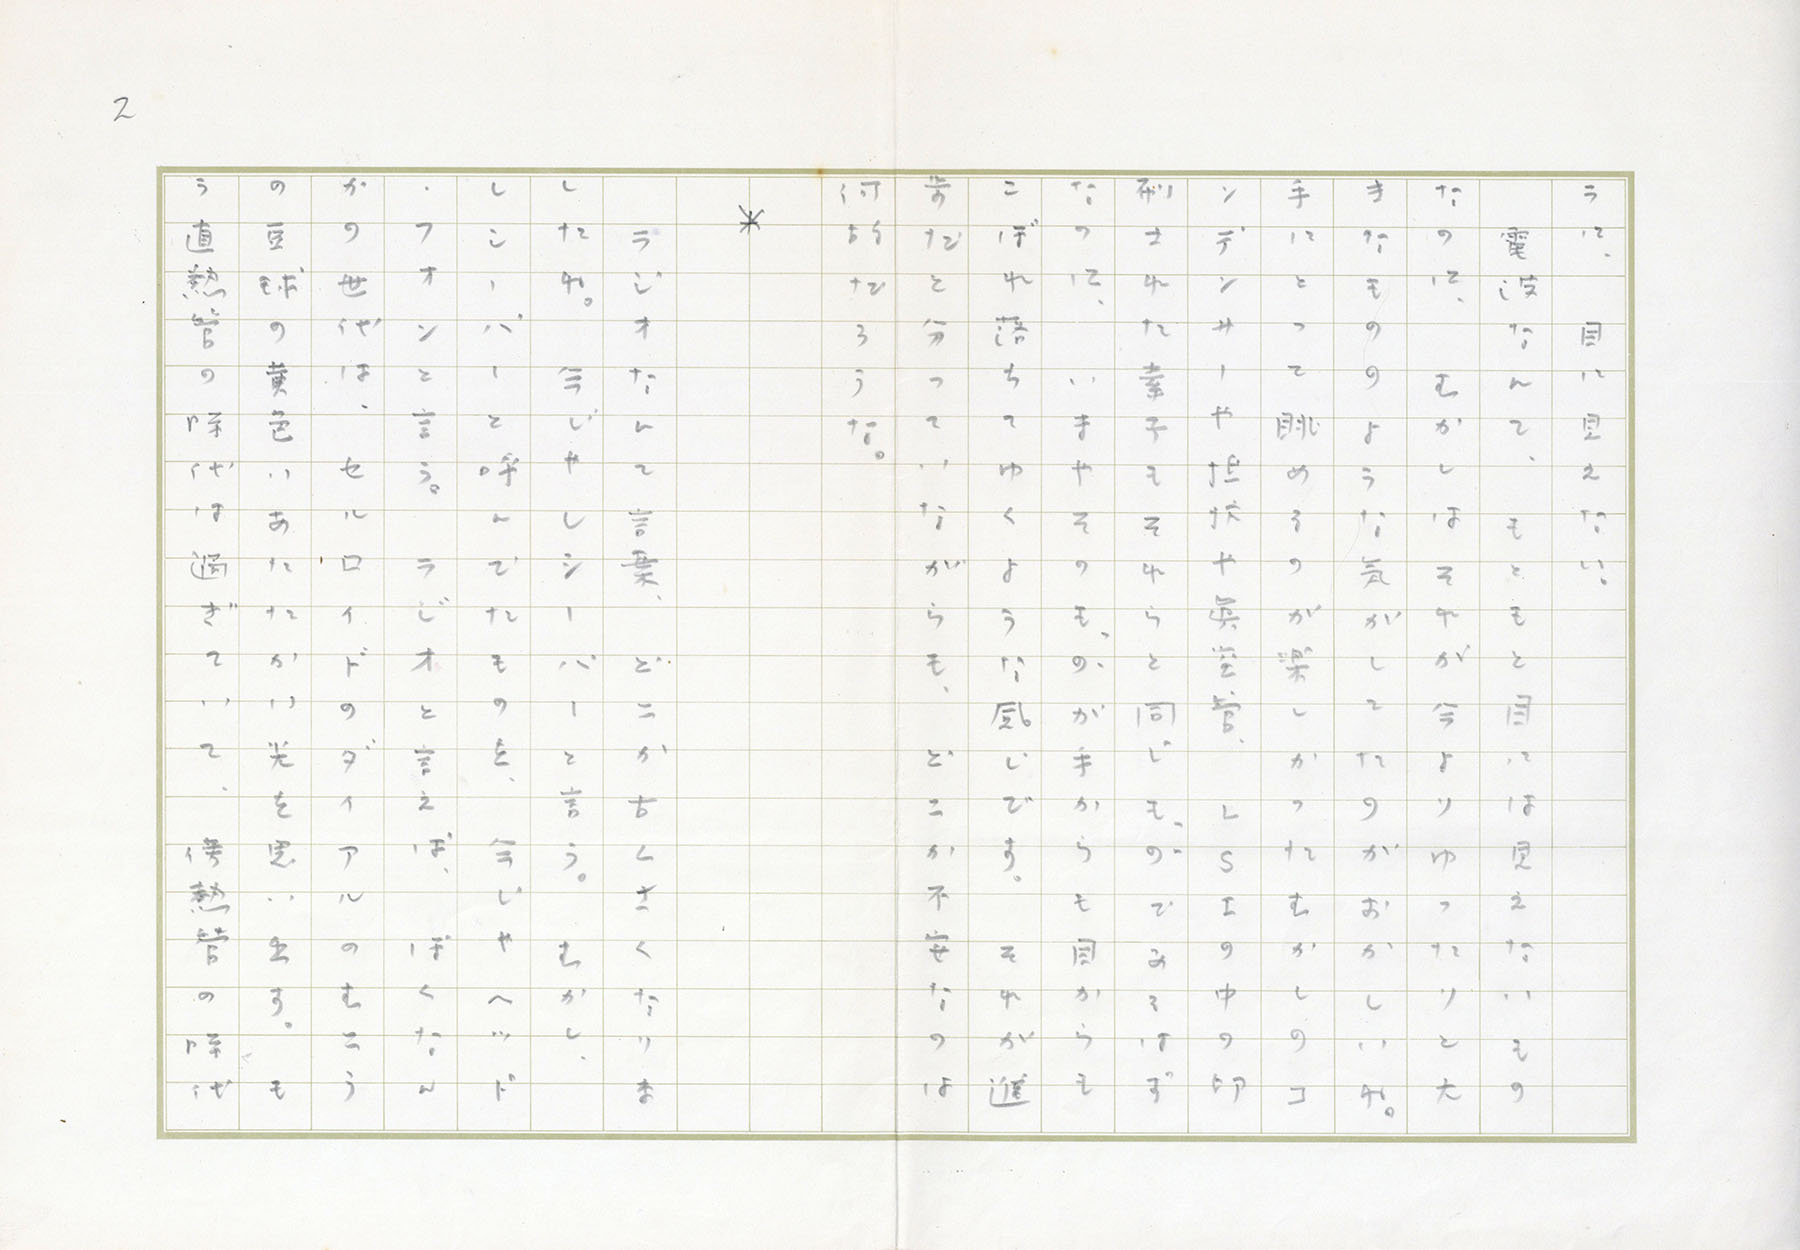 2
うに、目に見えない。
電波なんて、もともと目には見えないもの
なのに、むかしはそれが今よりゆったりと大
きなもののような気がしてたのがおかしいね。
手にとって眺めるのが楽しかったむかしのコ
ンデンサーや抵抗や真空管、LSIの中の印
刷された素子もそれらと同じものであるはず
なのに、いまやそのものが手からも目からも
こぼれ落ちてゆくような感じです。それが進
歩だと分っていながらも、どこか不安なのは
何故だろうな。
*
ラジオなんて言葉、どこか古くさくなりま
したね。今じゃレシーバーと言う。むかし、
レシーバーと呼んでたものを、今じゃヘッド
・フォンと言う。ラジオと言えば、ぼくなん
かの世代は、セルロイドのダイアルのむこう
の豆球の黄色いあたたかい光を思い出す。も
う直熱管の時代は過ぎていて、傍熱管の時代